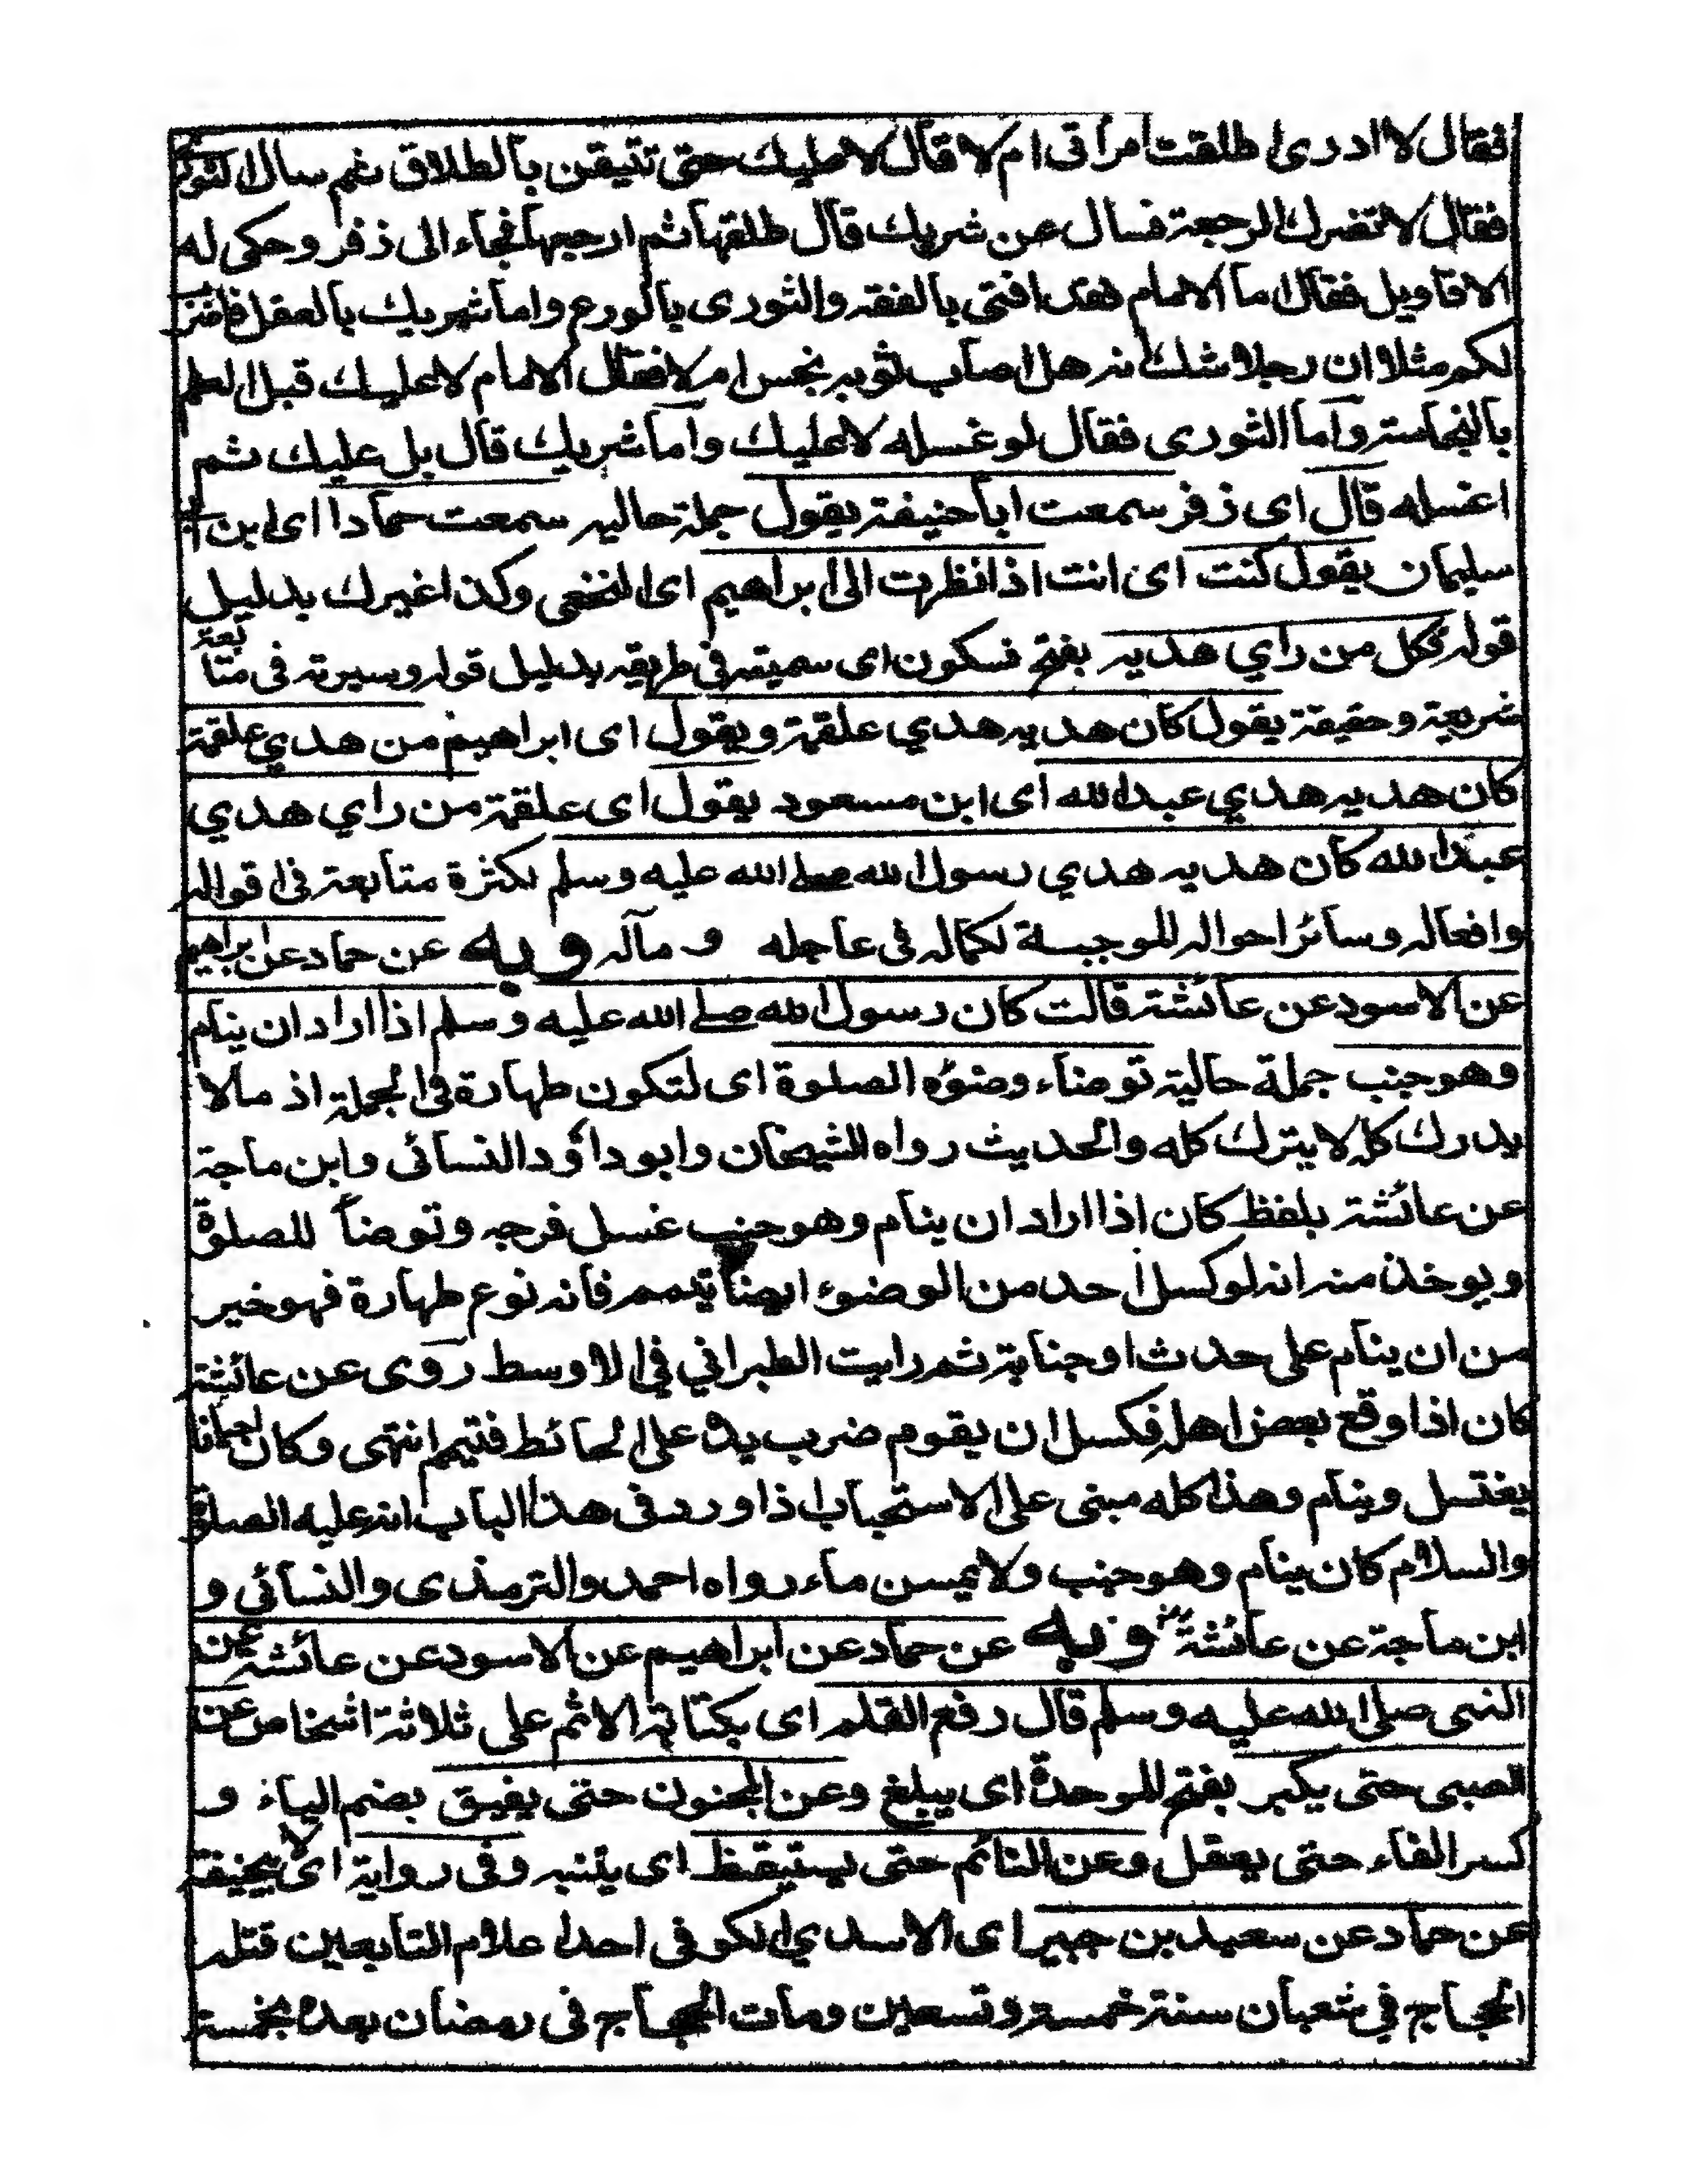 فقال لا ادرى اطلقت امرأتى ام لا قال لا عليك حتى تتيقن بالطلاق ثم سال الثورى
فقال لا تضرك الرجعة فسال عن شريك قال طلقها ثم ارجعها فجاء الى زفر وحكى له
الاقاويل فقال اما الامام فقد افتى بالفقه والثورى بالورع واما شريك بالعقل فاضرب
لكم مثلا ان رجلا شك انه هل اصاب ثوبه نجس ام لا فقال الامام لا عليك قبل العلم
بالنجاسة واما الثورى فقال لو غسله لا عليك واما شريك قال بل عليك ثم
اغسله قال اى زفر سمعت ابا حنيفة يقول جملة حاليه سمعت حمادا اى ابن ابى
سليمان يقول كنت اى انت اذا نظرت الى ابراهيم اى النخعى وكذا غيرك بدليل
قوله فكل من راي هديه بفتح فسكون اى سميته فى طريقه بدليل قوله وسيرته فى متابعة
شريعة وحقيقة يقول كان هديه هدي علقمة ويقول اى ابراهيم من هدي علقمة
كان هديه هدي عبد الله اى ابن مسعود يقول اى علقمة من راي هدي
عبد الله كان هديه هدي رسول الله صلے الله عليه وسلم لكثرة متابعته فى اقواله
وافعاله وسائر احواله الموجبة لكماله فى عاجله و مآله وبه عن حماد عن ابراهيم
عن الاسود عن عائشة قالت كان رسول الله صلے الله عليه وسلم اذا اراد ان ينام
وهو جنب جملة حالية توضاء وضوءه الصلوة اى لتكون طهارة فى الجملة اذ مالا
يدرك كله لا يترك كله والحديث رواه الشيخان وابو داؤد والنسائى وابن ماجة
عن عائشة بلفظ كان اذا اراد ان ينام وهو جنب غسل فرجه وتوضأ للصلوة
ويوخذ منه انه لو كسل احد من الوضوء ايضا تيمم فانه نوع طهارة فهو خير
من ان ينام على حدث او جنابة ثم رايت الطبراني في الاوسط روى عن عائشة
كان اذا وقع بعض اهله فكسل ان يقوم ضرب يده على الحائط فتيمم انتهى وكان احيانا
يغتسل وينام وهذا كله مبنى على الاستحباب اذا ورد فى هذا الباب انه عليه الصلوة
والسلام كان ينام وهو جنب ولا يمسن ماء رواه احمد والترمذى والنسائي و
ابن ماجة عن عائشة وبه عن حماد عن ابراهيم عن الاسود عن عائشة عن
النبى صلى الله عليه وسلم قال رفع القلم اى بكتابة الاثم على ثلاثة اشخاص عن
الصبى حتى يكبر بفتح الموحدة اى يبلغ وعن المجنون حتى يفيق بضم الياء و
كسر الفاء حتى يعقل وعن النائم حتى يستيقظ اى يتنبه وفى رواية اى لابى حنيفة
عن حماد عن سعيد بن جبير اى الاسدي الكوفى احد اعلام التابعين قتله
الحجاج في شعبان سنة خمسة وتسعين ومات الحجاج فى رمضان بعده بخمسة